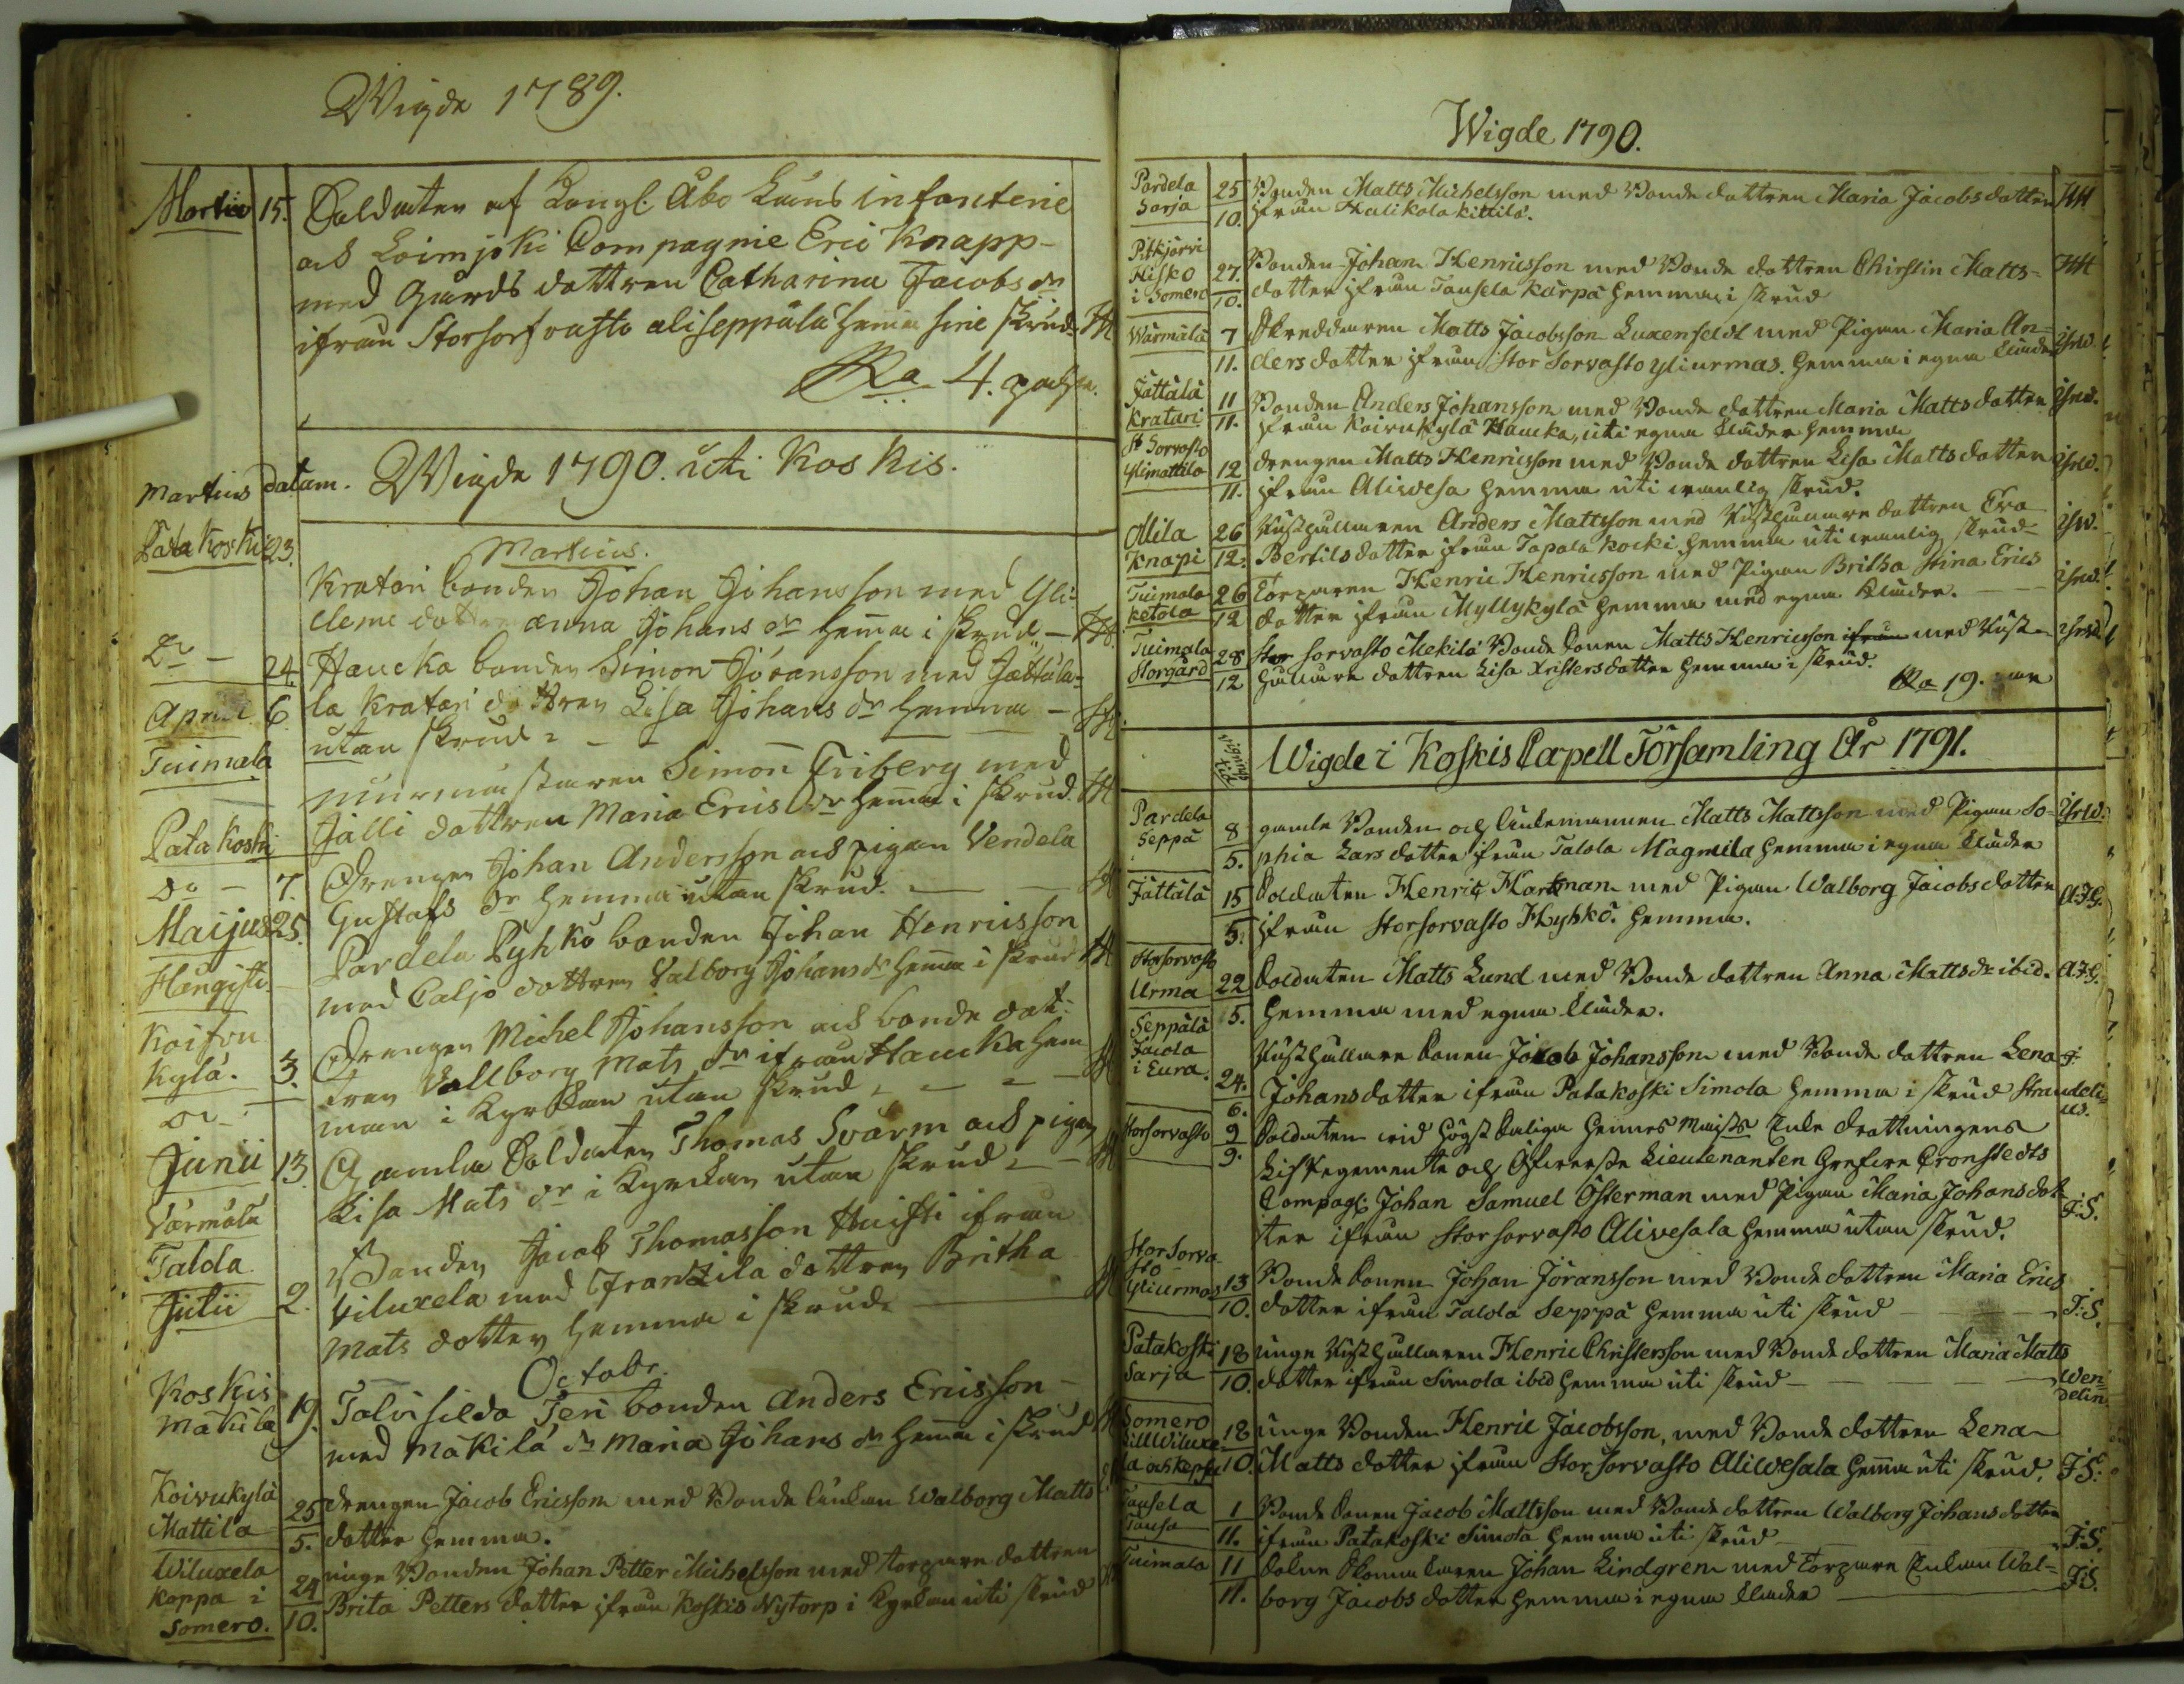 Wigde 1789.
Martii 15. Soldaten af Kongl. Åbo Läns infanterie
och Loimjoki Compagnie Eric Knapp
med Gårds dottren Catharina Jacobs dr
ifrån Storsorfvasto aliseppälä hema sine skrud HH
Sa 4. par
Wigde 1790. uti Koskis.
Martius datum.
Martius.
Patakoski 23. Kratari bonden Johan Johansson med Yli-
dottren anna Johans dr hema i skrud HH
Do 24. Haucka bonden Simon Göransson med Jättälä-
la Kratari dottren Lisa Johans dr hemma HH
utan skrud
April 6.
Tuimala
murmästaren Simon Friberg med
Jälli dottren Maria Erics dr hema i skrud. HH
Patakoski
Do 7. Drengen Johan Andersson och pigan Vendela
Gustafs dr hemma utan skrud. HH
Maijus 25. Pardela Pyhkö bonden Johan Henricsson
Hengisti. med Paljo dottren Valborg Johans dr hema i skrud HH
Koifvu
Kylä. 3. Drengen Michel Johansson och bonde dot-
tren Vallborg Mats dr ifrån Haucka hem HH
man i Kyrckan utan skrud
Do
Junii 13. Gamla Soldaten Thomas Svärm och pigan HH
Lisa Mats dr i Kyrckan utan skrud
Värmälä
Talola
Julii 2. Bonden Jacob Thomasson Huisti ifrån
Viluxela med Frantzila dottren Britha HH
Mats dotter hemma i skrud
Octobr.
Koskis
Mäkilä 19. Talvisilda Teri bonden Anders Ericsson
med Mäkilä dr Maria Johans dr hema i skrud HH
Koivukylä
Mattila 25/5. drengen Jacob Ericsson med Bonde Enkan Walborg Matts
dotter hemma.
Wiluxela
Koppa i
Somero. 24/10. unge Bonden Johan Petter Michelsson med torpare dottren
Brita Petters dotter ifrån Koskis Nytorp i Kyrkan uti skrud
Wigde 1790.
Pardela
Sarja 25/10. Bonden Matts Michelsson med Bonde dottren Maria Jacobs dotter HH
ifrån Halikola kittilä.
Pitkjärvi
Hisko
i Somero 27/10. Bonden Johan Henricsson med Bonde dottren Christin Matts- HH
dotter ifrån Tausela karpa hemma i skrud
Wärmälä 7/11. Skreddaren Matts Jacobsson Luxenfeldt med Pigan Maria An-
ders dotter ifrån Stor Sorvasto yliurmas. hemma i egna kläder
Jättälä
Kratari 11/11. Bonden Anders Johansson med Bonde dottren Maria Matts dotter
ifrån Koivukylä Haucka, uti egna kläder hemma
St Sorvasto
Ylimattila 12/11. drengen Matts Henricsson med Bonde dottren Lisa Matts dotter
ifrån Alivesa hemma uti vanlig skrud.
Ollila
Knapi 26/12. Rusthållaren Anders Mattsson med Rusthållare dottren Eva
Bertils dotter ifrån Tapala kocki hemma uti vanlig skrud
Tuimala
ketola 26/12 Torparen Henric Henricsson med Pigan Britha Stina Erics
dotter ifrån Myllykylä hemma med egna kläder.
Tuimala
Storgård 28/12 Stor Sorvasto Mekilä Bonde sonen Matts Henricsson ifrån med Rust-
hållare dottren Lisa Kristers dotter hemma i skrud.
Sa 19. par
Wigde i Koskis Capell Församling År 1791.
Pardela
Seppä 8/5. gamla Bonden och Enkemannen Matts Mattsson med Pigan So-
phia Lars dotter ifrån Talola Magnila hemma i egna kläder
Jättälä 15/5. Soldaten Henric Hartman med Pigan Walborg Jacobs dotter A.F.G.
ifrån Storsorvasto Hyhkö. hemma.
Storsorvasto
Urma 22/5. Soldaten Matts Lund med Bonde dottren Anna Matts dr ibid. A.F.G.
hemma med egna kläder.
Seppälä
Jacola
i Eura. 24/6. Rusthållare sonen Jacob Johansson med Bonde dottren Lena
Johans dotter ifrån Patakoski Simola hemma i skrud
Storsorvasto 9/9. Soldaten vid högst Salig Hennes Maijts Enke Drottningens
Lif Regemente och Öfverste Lieutenanten Grefve Cronstedts
Compagi. Johan Samuel Österman med Pigan Maria Johans dot-
ter ifrån Storsorvasto Alivesala hemma utan skrud. F.S.
Stor Sorva
sto
Yliurmas 13/10. Bonde sonen Johan Jöransson med Bonde dottren Maria Erics
dotter ifrån Talola Seppä hemma uti skrud F.S.
Patakoski
Sarja 18/10. unge Rusthållaren Henric Christersson med Bonde dottren Maria Matts
dotter ifrån Simola ibid hemma uti skrud Wen-
delin
Somero
Sill Wiluxe-
la och Kepsu 18/10. unge Bonden Henric Jacobsson, med Bonde dottren Lena
Matts dotter ifrån Stor Sorvasto Alivesala hema uti skrud. F.S.
Tausela
Tausa 1/11. Bonde sonen Jacob Mattsson med Bonde dottren Walborg Johans dotter
ifrån Patakoski Simola hemma uti skrud F.S.
Tuimala 11/11. Johan Lindgren med Torpare Enkan Wal-
borg Jacobs dotter hemma i egna kläder F.S.